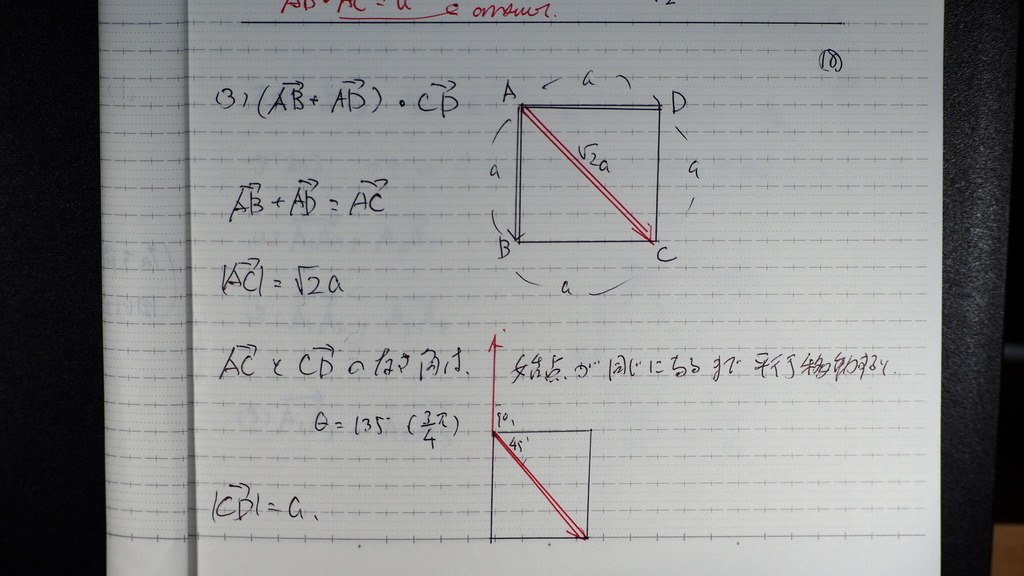 AB・AC = a² answer.
(18)
(3) (AB→ + AD→)・CD→
A a D
a √2a a
B C
a
AB→ + AD→ = AC→
|AC→| = √2a
AC→ と CD→ のなす角は、 始点が同じになるまで平行移動し、
θ = 135° (3π/4)
90°
45°
|CD→| = a.